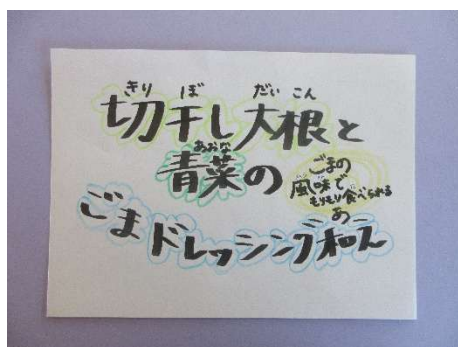 きりぼ だいこん
切干し大根と
あおな
青菜の
ごまの
風味で
もりもり食べられる
あ
ごまドレッシング和え